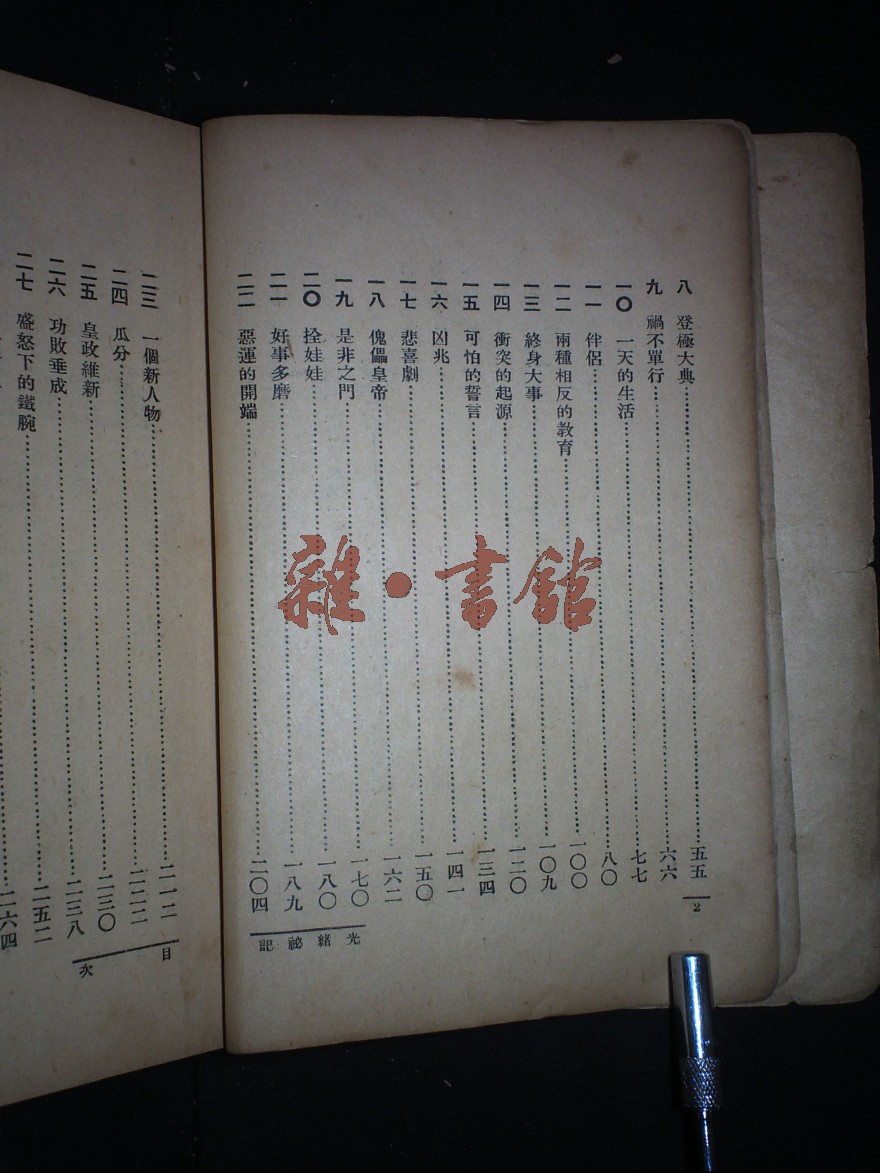 八 登極大典……五五
九 禍不單行……六六
一〇 一天的生活……七七
一一 伴侶……八〇
一二 兩種相反的教育……一〇〇
一三 終身大事……一〇九
一四 衝突的起源……一二〇
一五 可怕的誓言……一三四
一六 凶兆……一四一
一七 悲喜劇……一五〇
一八 傀儡皇帝……一六二
一九 是非之門……一七〇
二〇 拴娃娃……一八〇
二一 好事多磨……一八九
二二 惡運的開端……二〇四
2
光緒祕記
二三 一個新人物……二一二
二四 瓜分……二二二
二五 皇政維新……二三〇
二六 功敗垂成……二三八
二七 盛怒下的鐵腕……二五二
二六四
目次
雜·書館